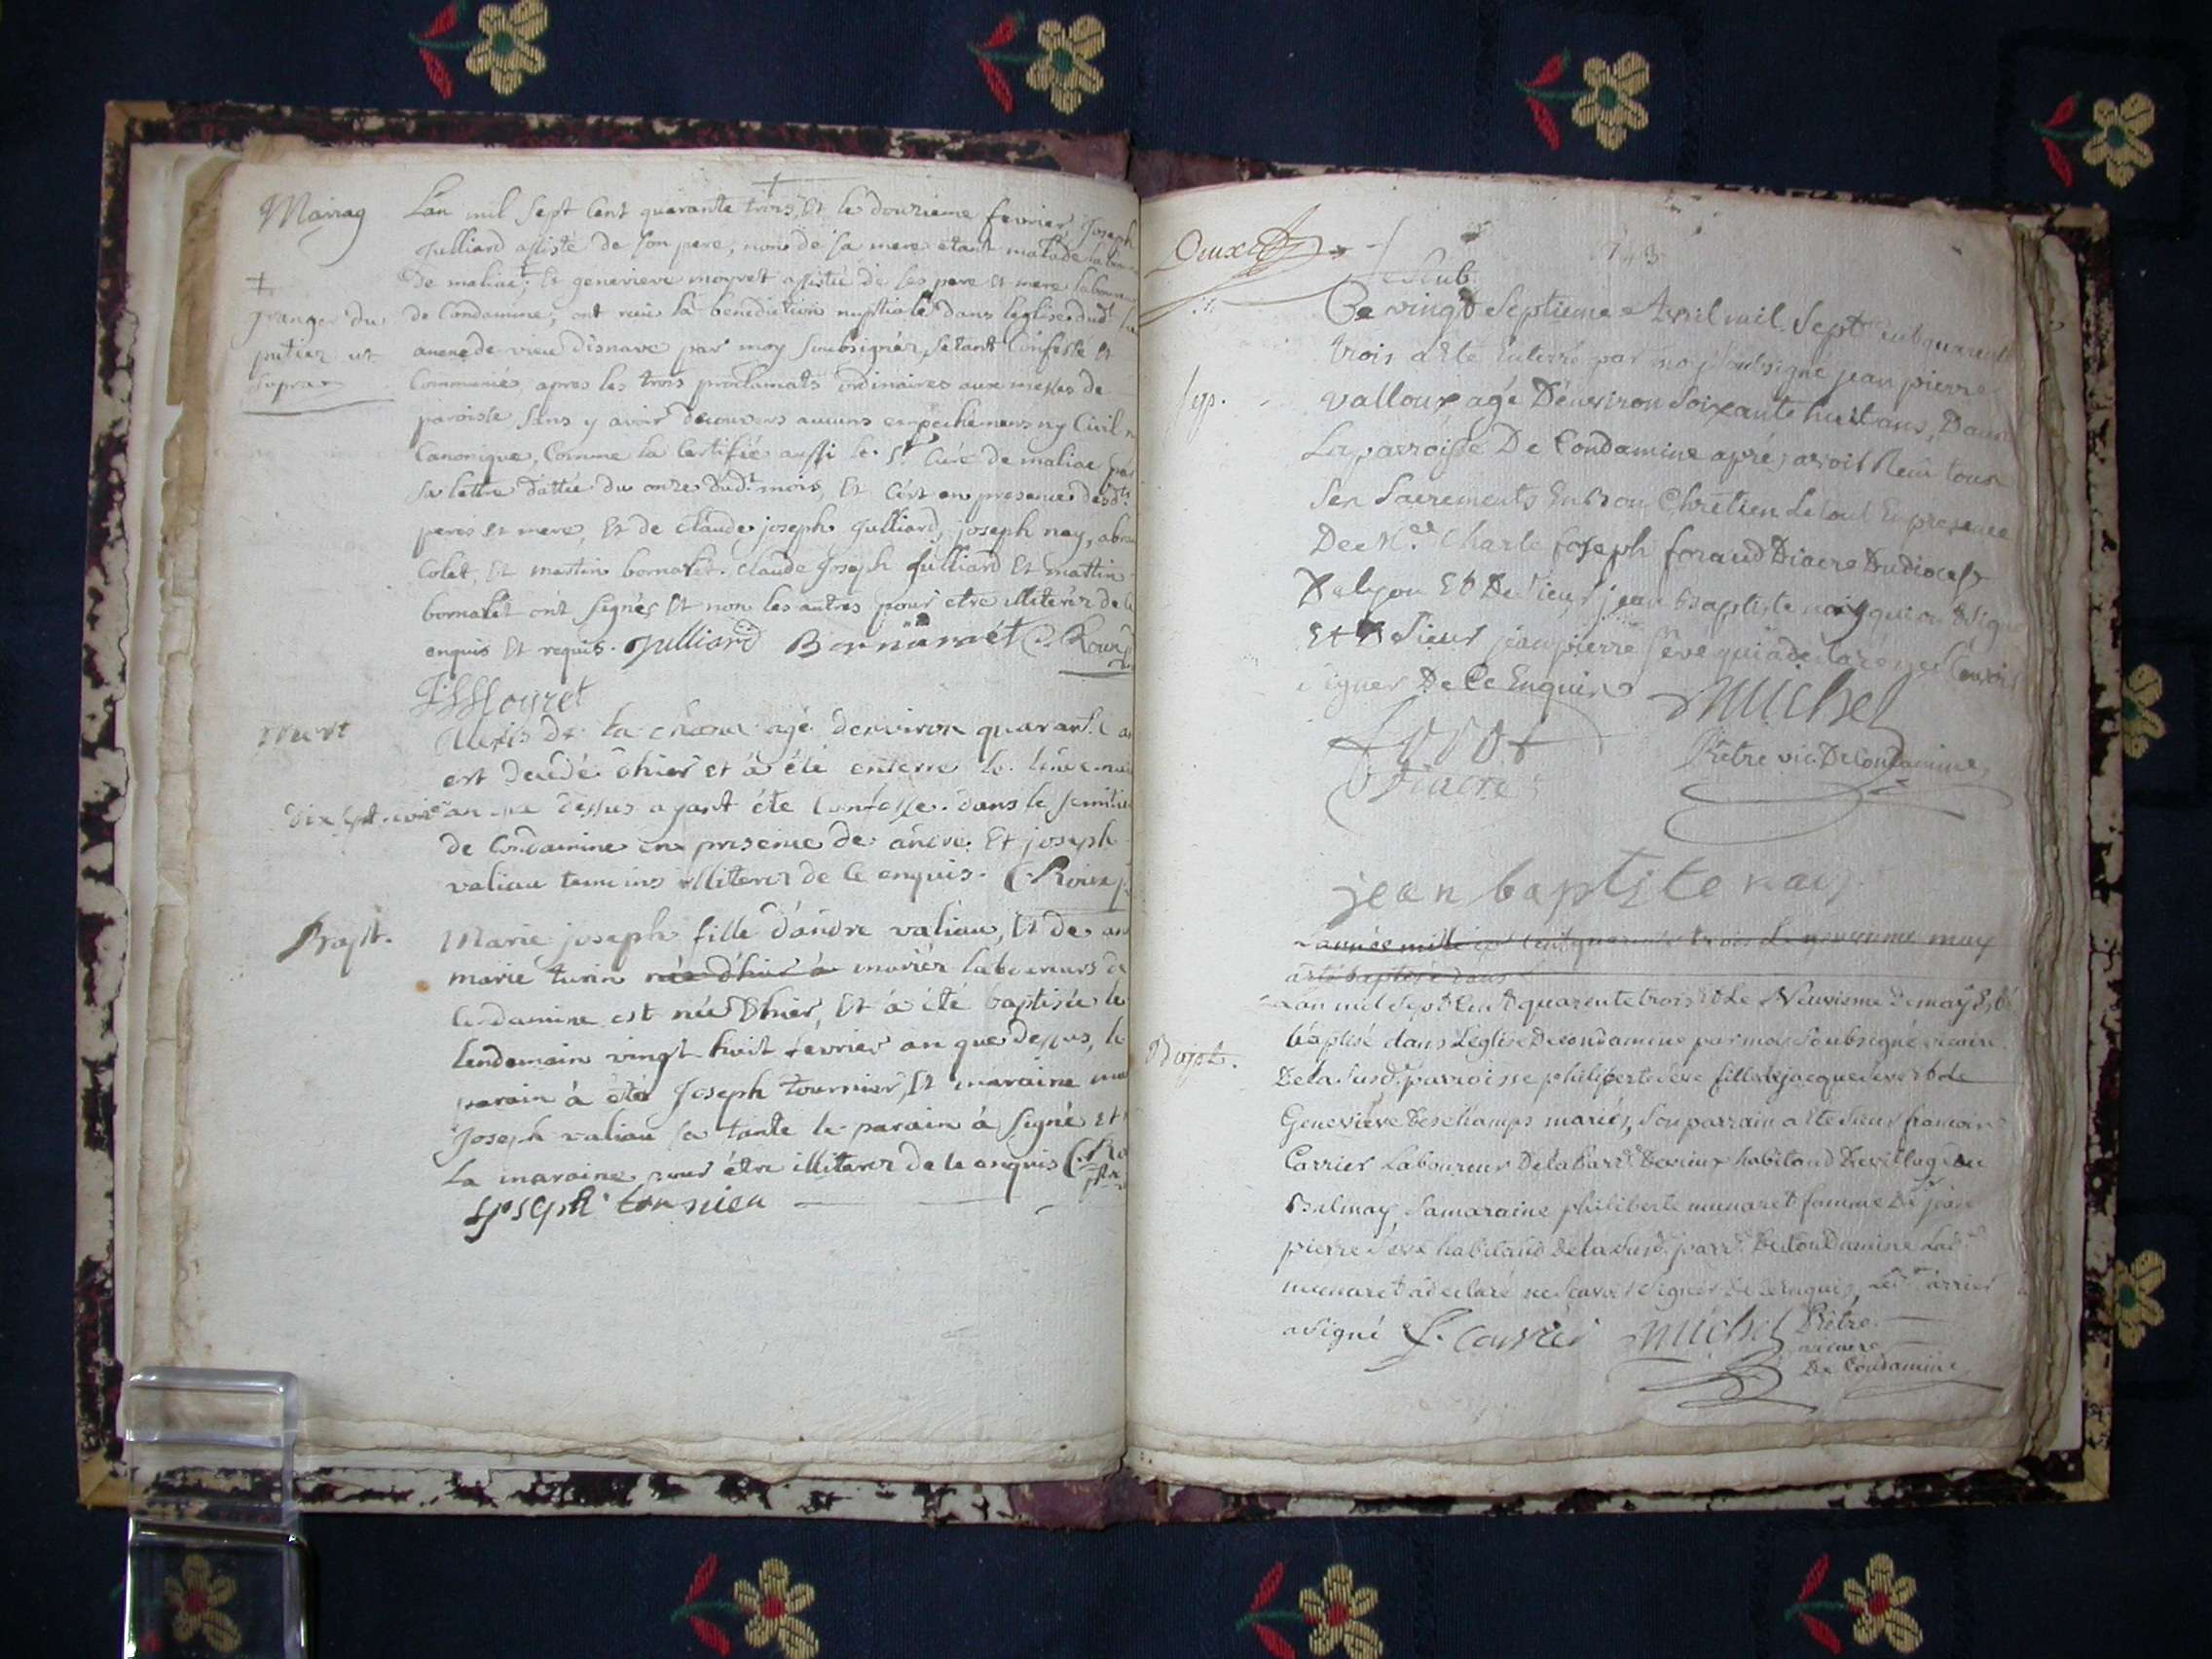 Mariag
L'an mil sept cent quarante trois, et le douzieme fevrier, Joseph
Julliard assisté de son pere, non de sa mere etant malade
de maliac; et genevieve moyret assistée de ses pere et mere laboureurs
de Condamine, ont reçu la benediction nuptiale dans l'eglise dudt
granger du
putier ut
supra
annexe de vieu disnave par moy soubsigné, s'etant confessé et
Communiés, apres les trois proclamats ordinaires aux messes de
paroisse sans y avoir decouvers aucuns empechemens ny Civil n
Canonique, Comme la Certifié aussi le Sr Curé de maliac par
sa lettre dattée du onze dudt mois, Et C'est en presence desdts
peres et mere, et de claude joseph Julliard, joseph nay,
Colet, et martin bornaret. claude Joseph Julliard et martin
bornaret ont signés et non les autres pour etre illiterez de ce
enquis et requis. Julliard Bornarét C. Roux
Moyret
mort
Alexis de la chana agé denviron quarante an
est decedé dhier et à été enterré le
dix sept
an que dessus ayant été Confessé dans le
de Condamine en presence de andre Et joseph
valiau temoins illiterez de ce enquis. C. Roux p.
Bapt.
Marie joseph fille d'andre valiau, Et de
marie turin née d'hier à mariez laboureurs de
Condamine est née Dhier, Et à été baptisée le
lendemain vingt huit fevrier an que dessus, le
parain à été Joseph tournier, Et maraine
Joseph valiau sa tante le parain à signé et
la maraine pour être illiterez de ce enquis C. Ro
Joseph tournieu
Deux
1743
Sep.
Ce vingt Septieme Avril mil Sept cent quarente
trois a Ete Enterré par moy soubsigné jean pierre
valloux agé D'environ Soixante huit ans, Dans
La parroisse De Condamine aprés avoir Reçu tous
Ses Sacrements En bon Chretien Le tout En presence
De Mre Charle joseph foraud Diacre Du diocese
De lyon Et De Sieur jean baptiste nay qui on signé
Et Sieur jean pierre Seve qui a declaré ne Sçavoir
signer De Ce Enquis
michel
Prêtre vic. De Condamine
Diacre
jean baptite nay
L'année mille sept cent quarente trois Le neuvieme may
a eté baptisé dans
L'an mil sept Cent quarente trois Et Le Neuvieme De may a Eté
Bapt.
baptisé dans L'eglise De condamine par moy soubsigné vicaire
De la susd. parroisse philiberte Seve fille de jacque Seve Et De
Genevieve Deschamps mariés, Son parrain a Ete Sieur francois
Carrier Laboureur De la Parr. De vieux habitand Du village De
Belmay, Sa maraine philiberte munaret femme De jean
pierre Seve habitand De la susd. parr. De Condamine Lad.
munaret a declaré ne Sçavoir Signer De Ce enquis, Led. Carrier
a signé f. Carrier michel Prêtre
vicaire
De Condamine